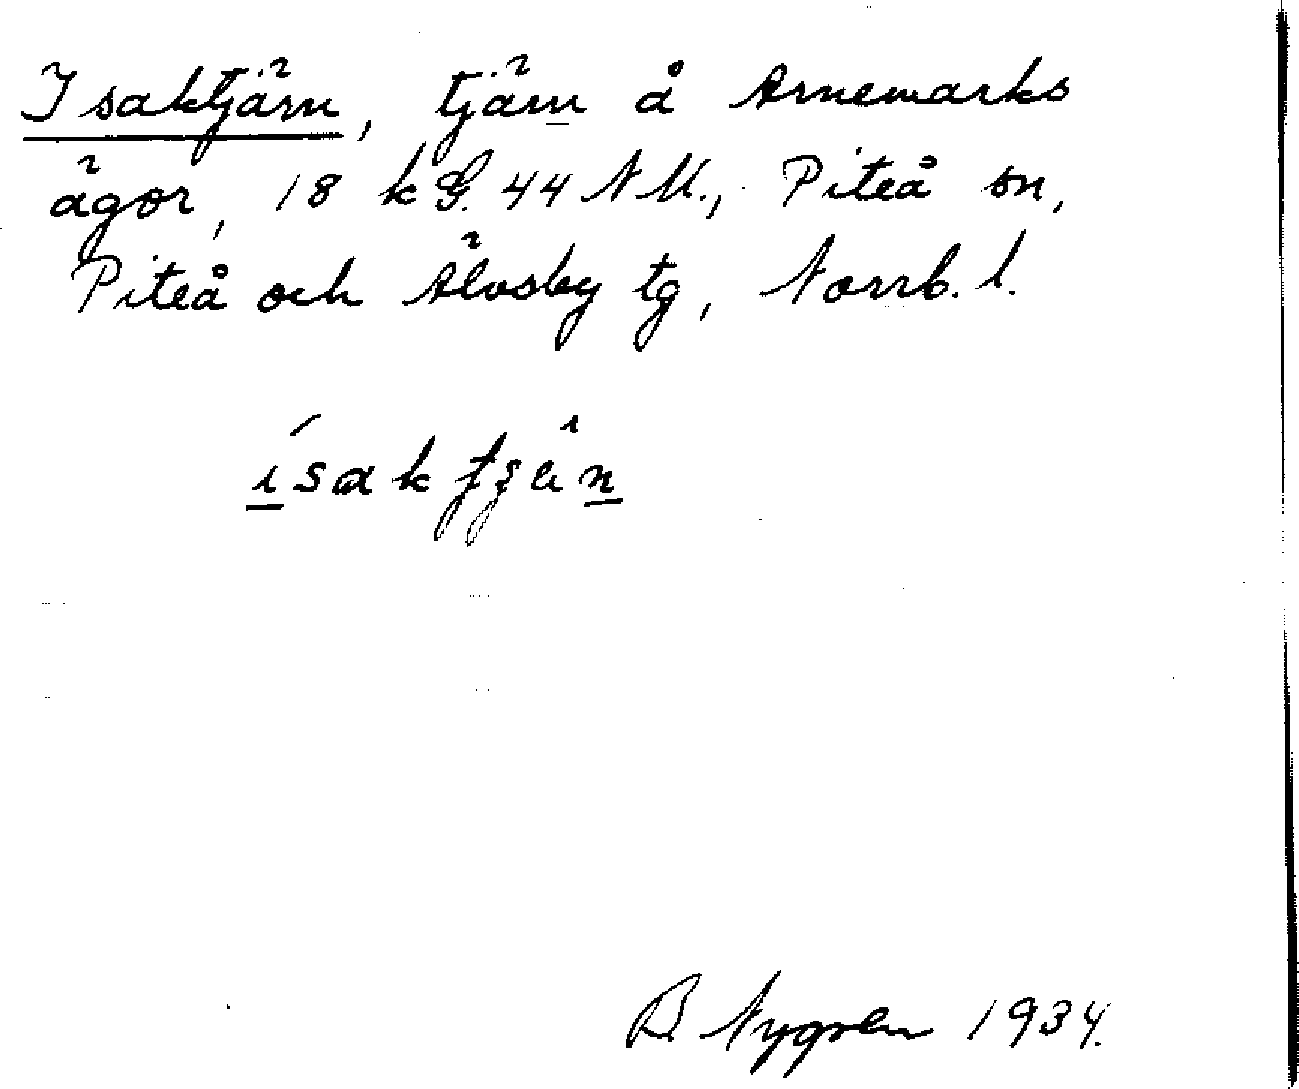 Isaktjärn, tjärn å Arnemarks
ägor, 18 k G. 44 N M., Piteå sn,
Piteå och Älvsby tg, Norrb. l.
ísak
B Nygren 1934.